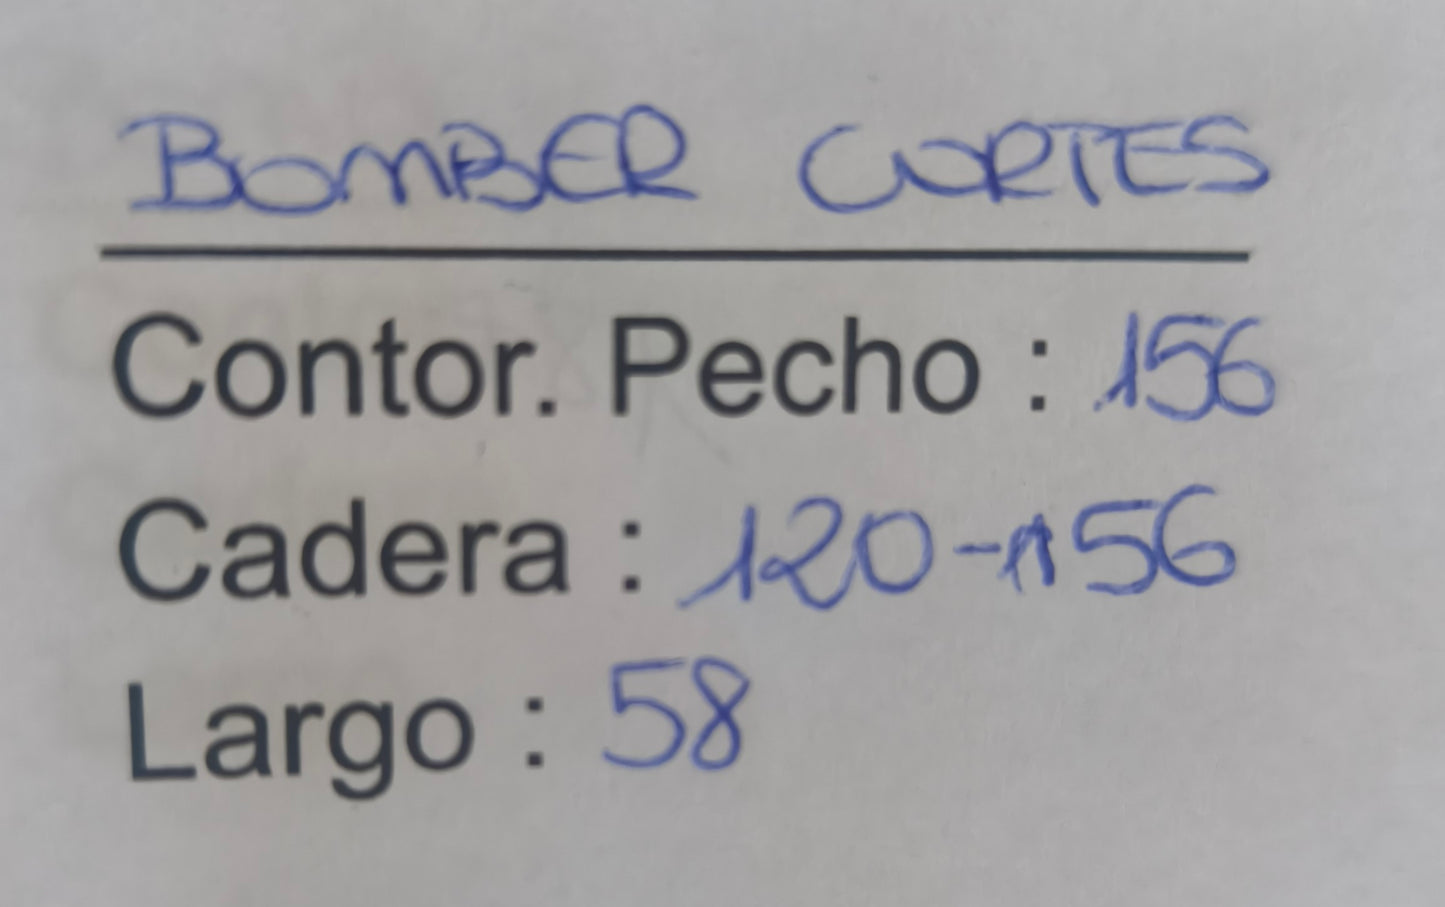 BOMBER CORTES
Contor. Pecho : 156
Cadera : 120-156
Largo : 58